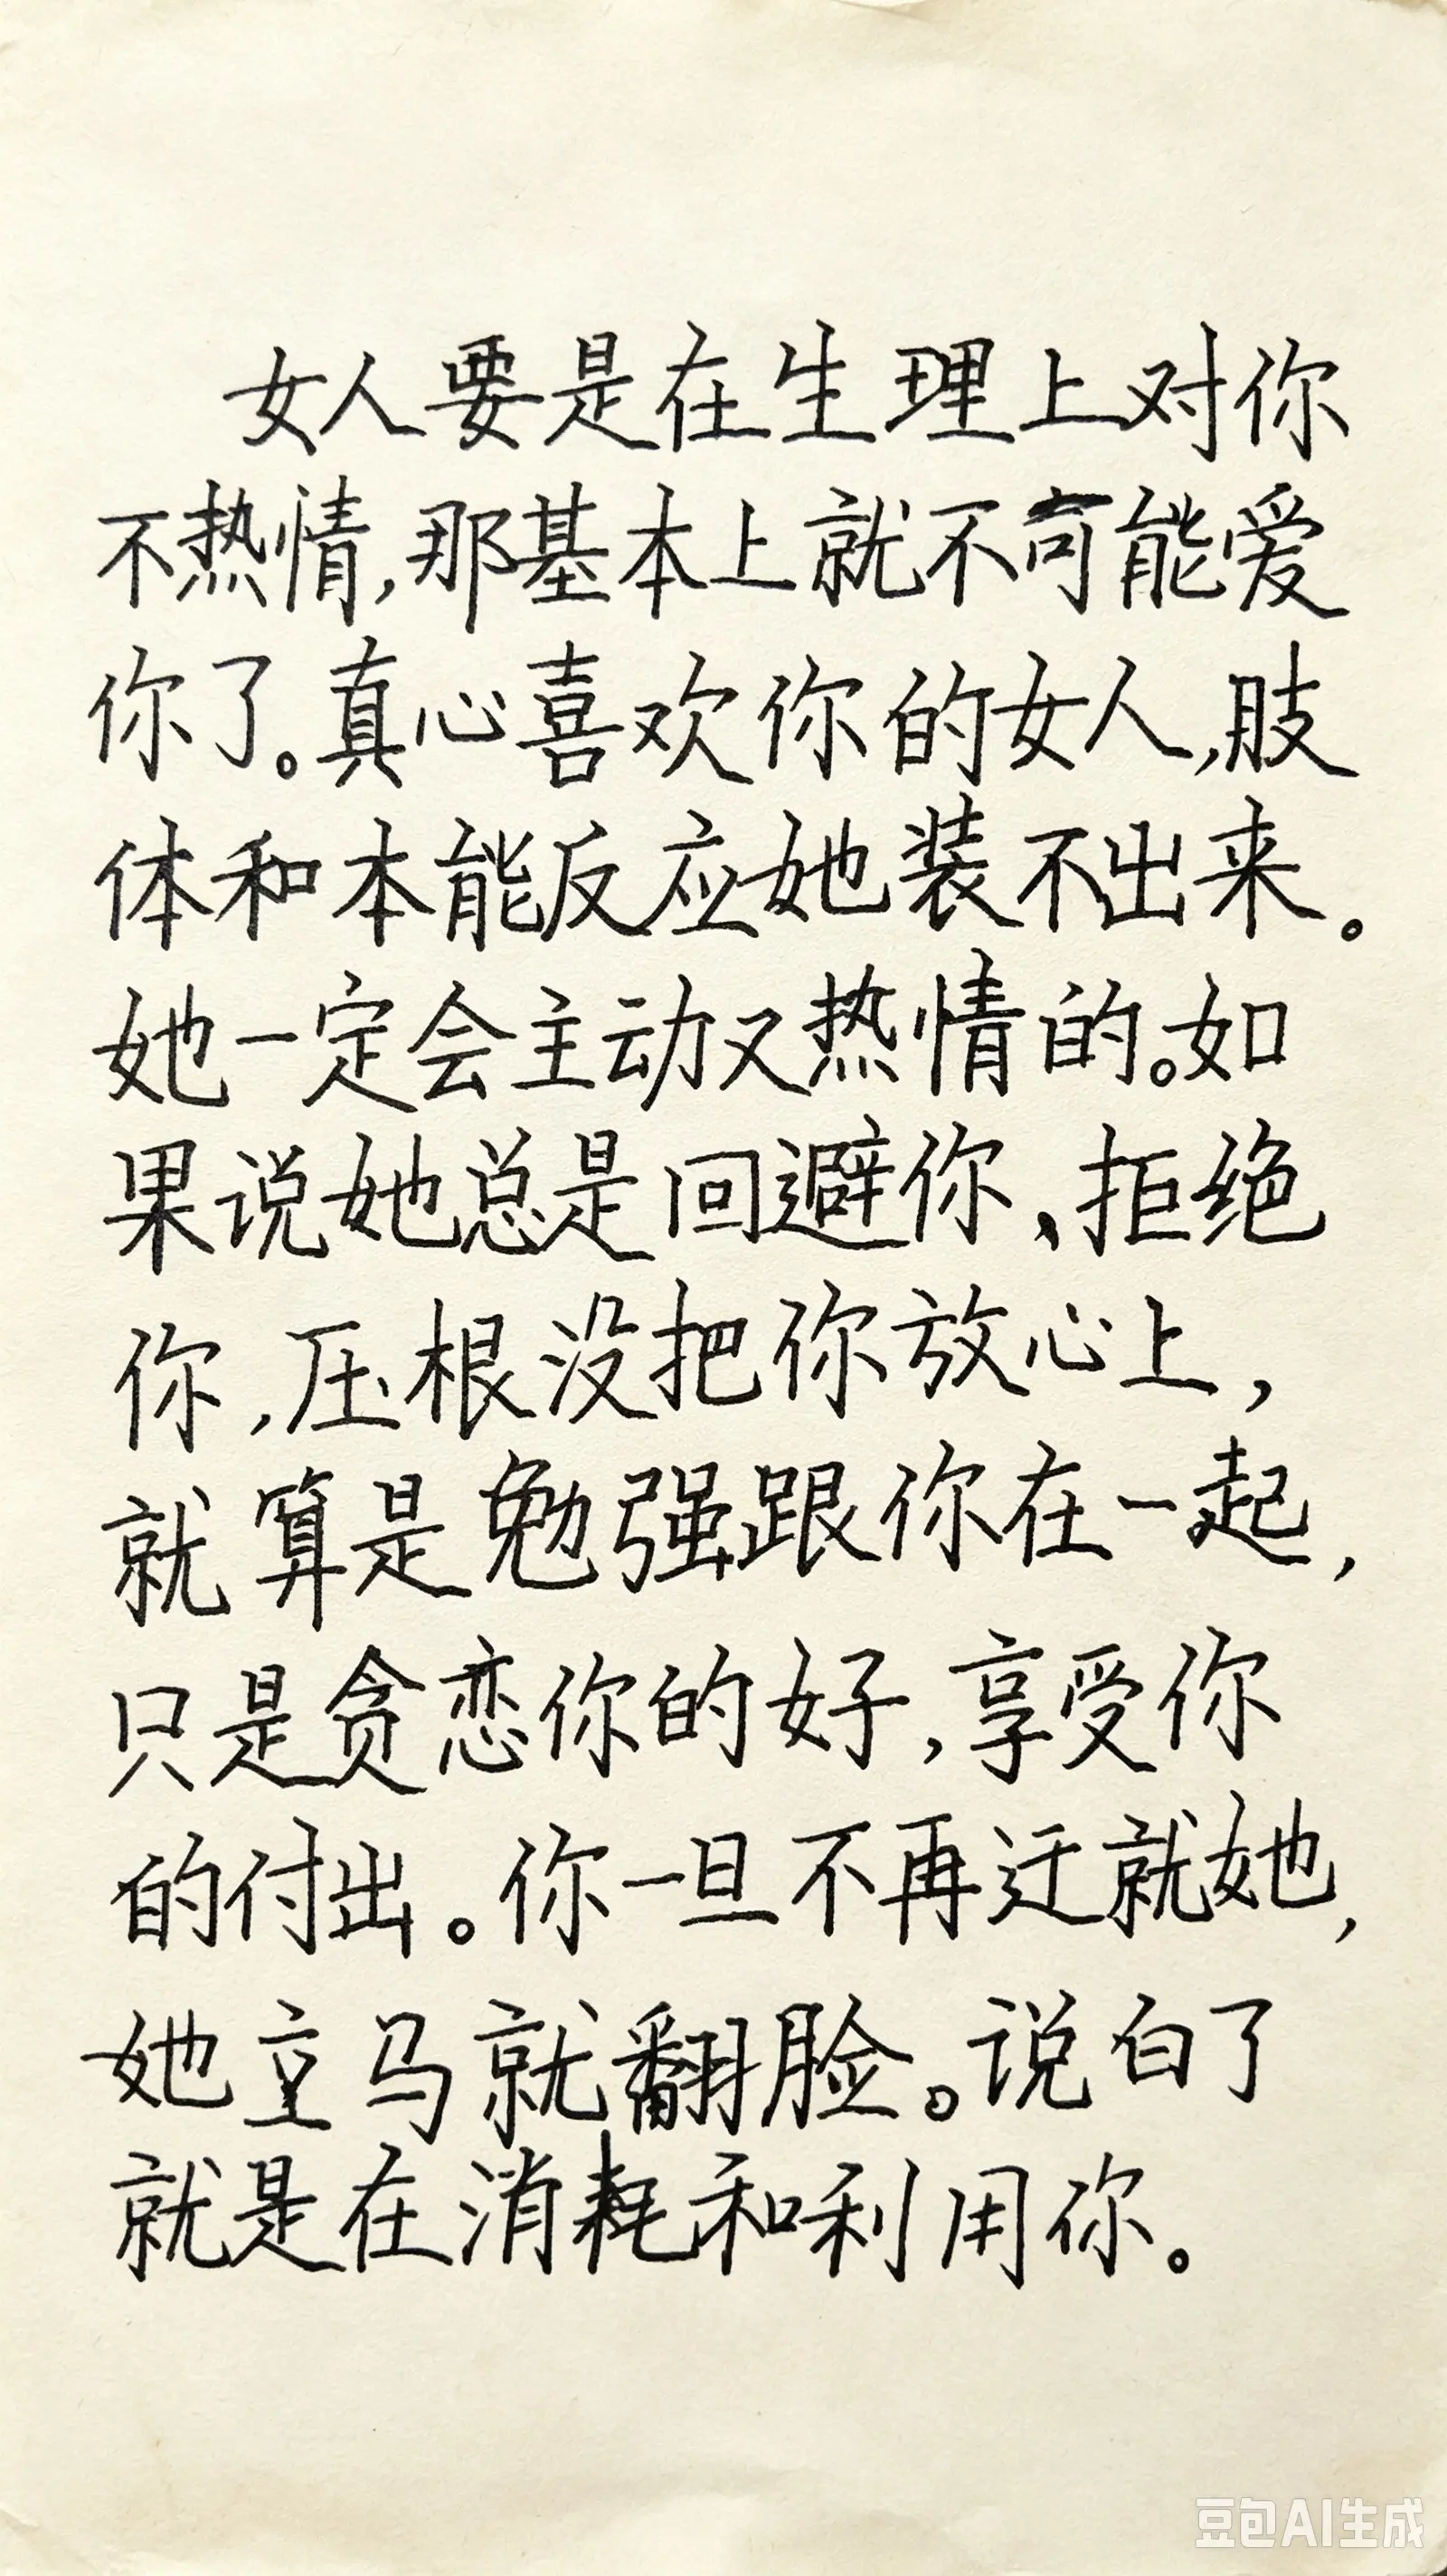 女人要是在生理上对你
不热情,那基本上就不可能爱
你了。真心喜欢你的女人,肢
体和本能反应她装不出来。
她一定会主动又热情的。如
果说她总是回避你、拒绝
你,压根没把你放心上,
就算是勉强跟你在一起,
只是贪恋你的好,享受你
的付出。你一旦不再迁就她,
她立马就翻脸。说白了
就是在消耗和利用你。
豆包AI生成